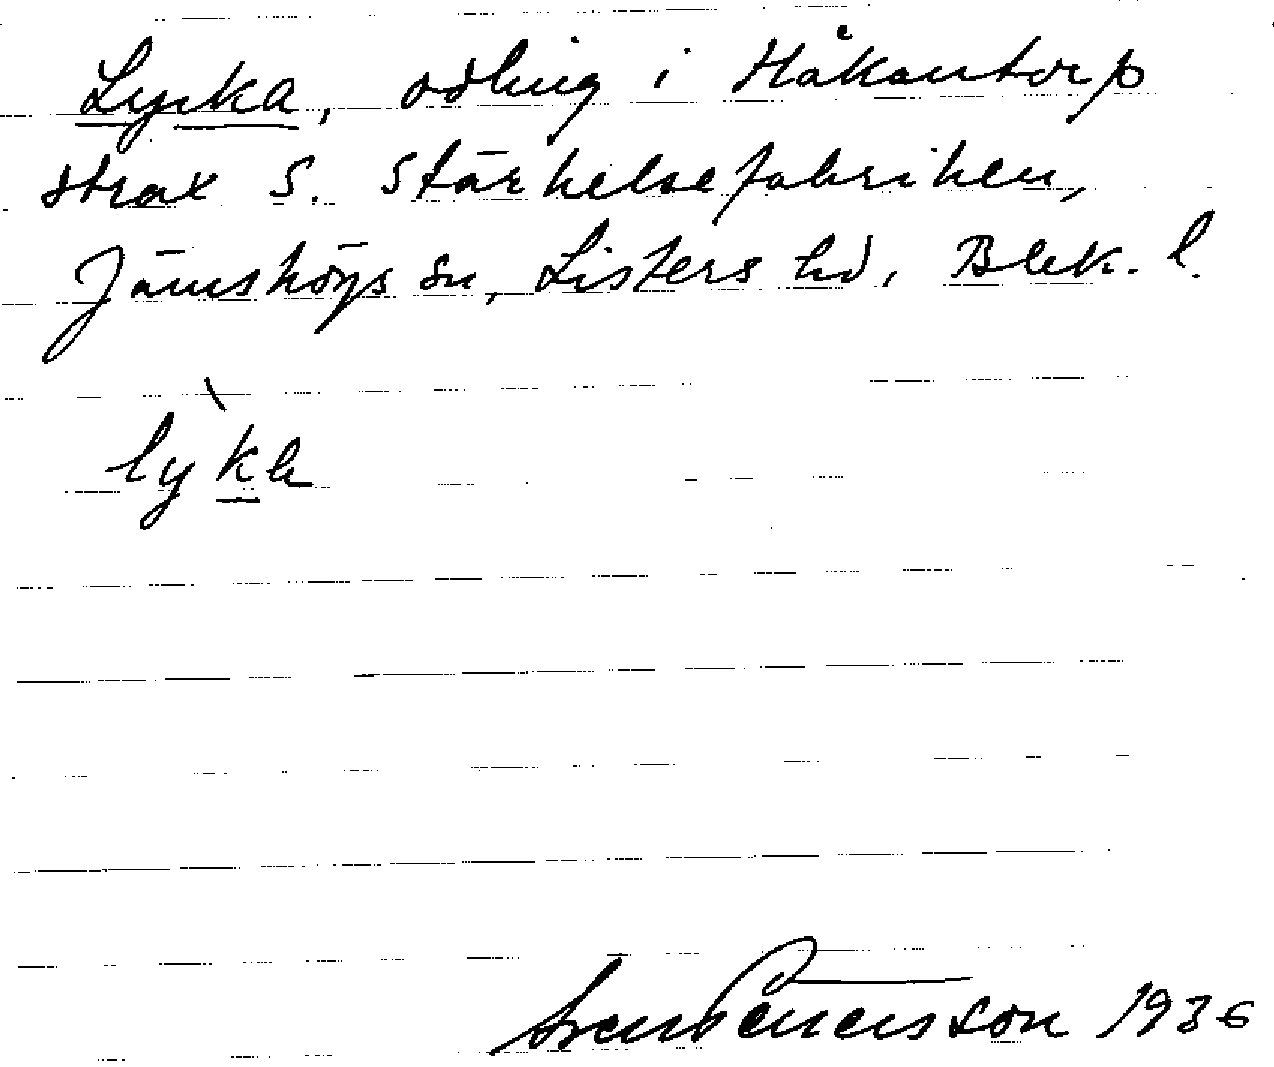 Lycka, odling i Håkantorp
strax S. Stärkelsefabriken,
Jämshögs sn, Listers hd, Blek. l.
lyka
Sven Benson 1936